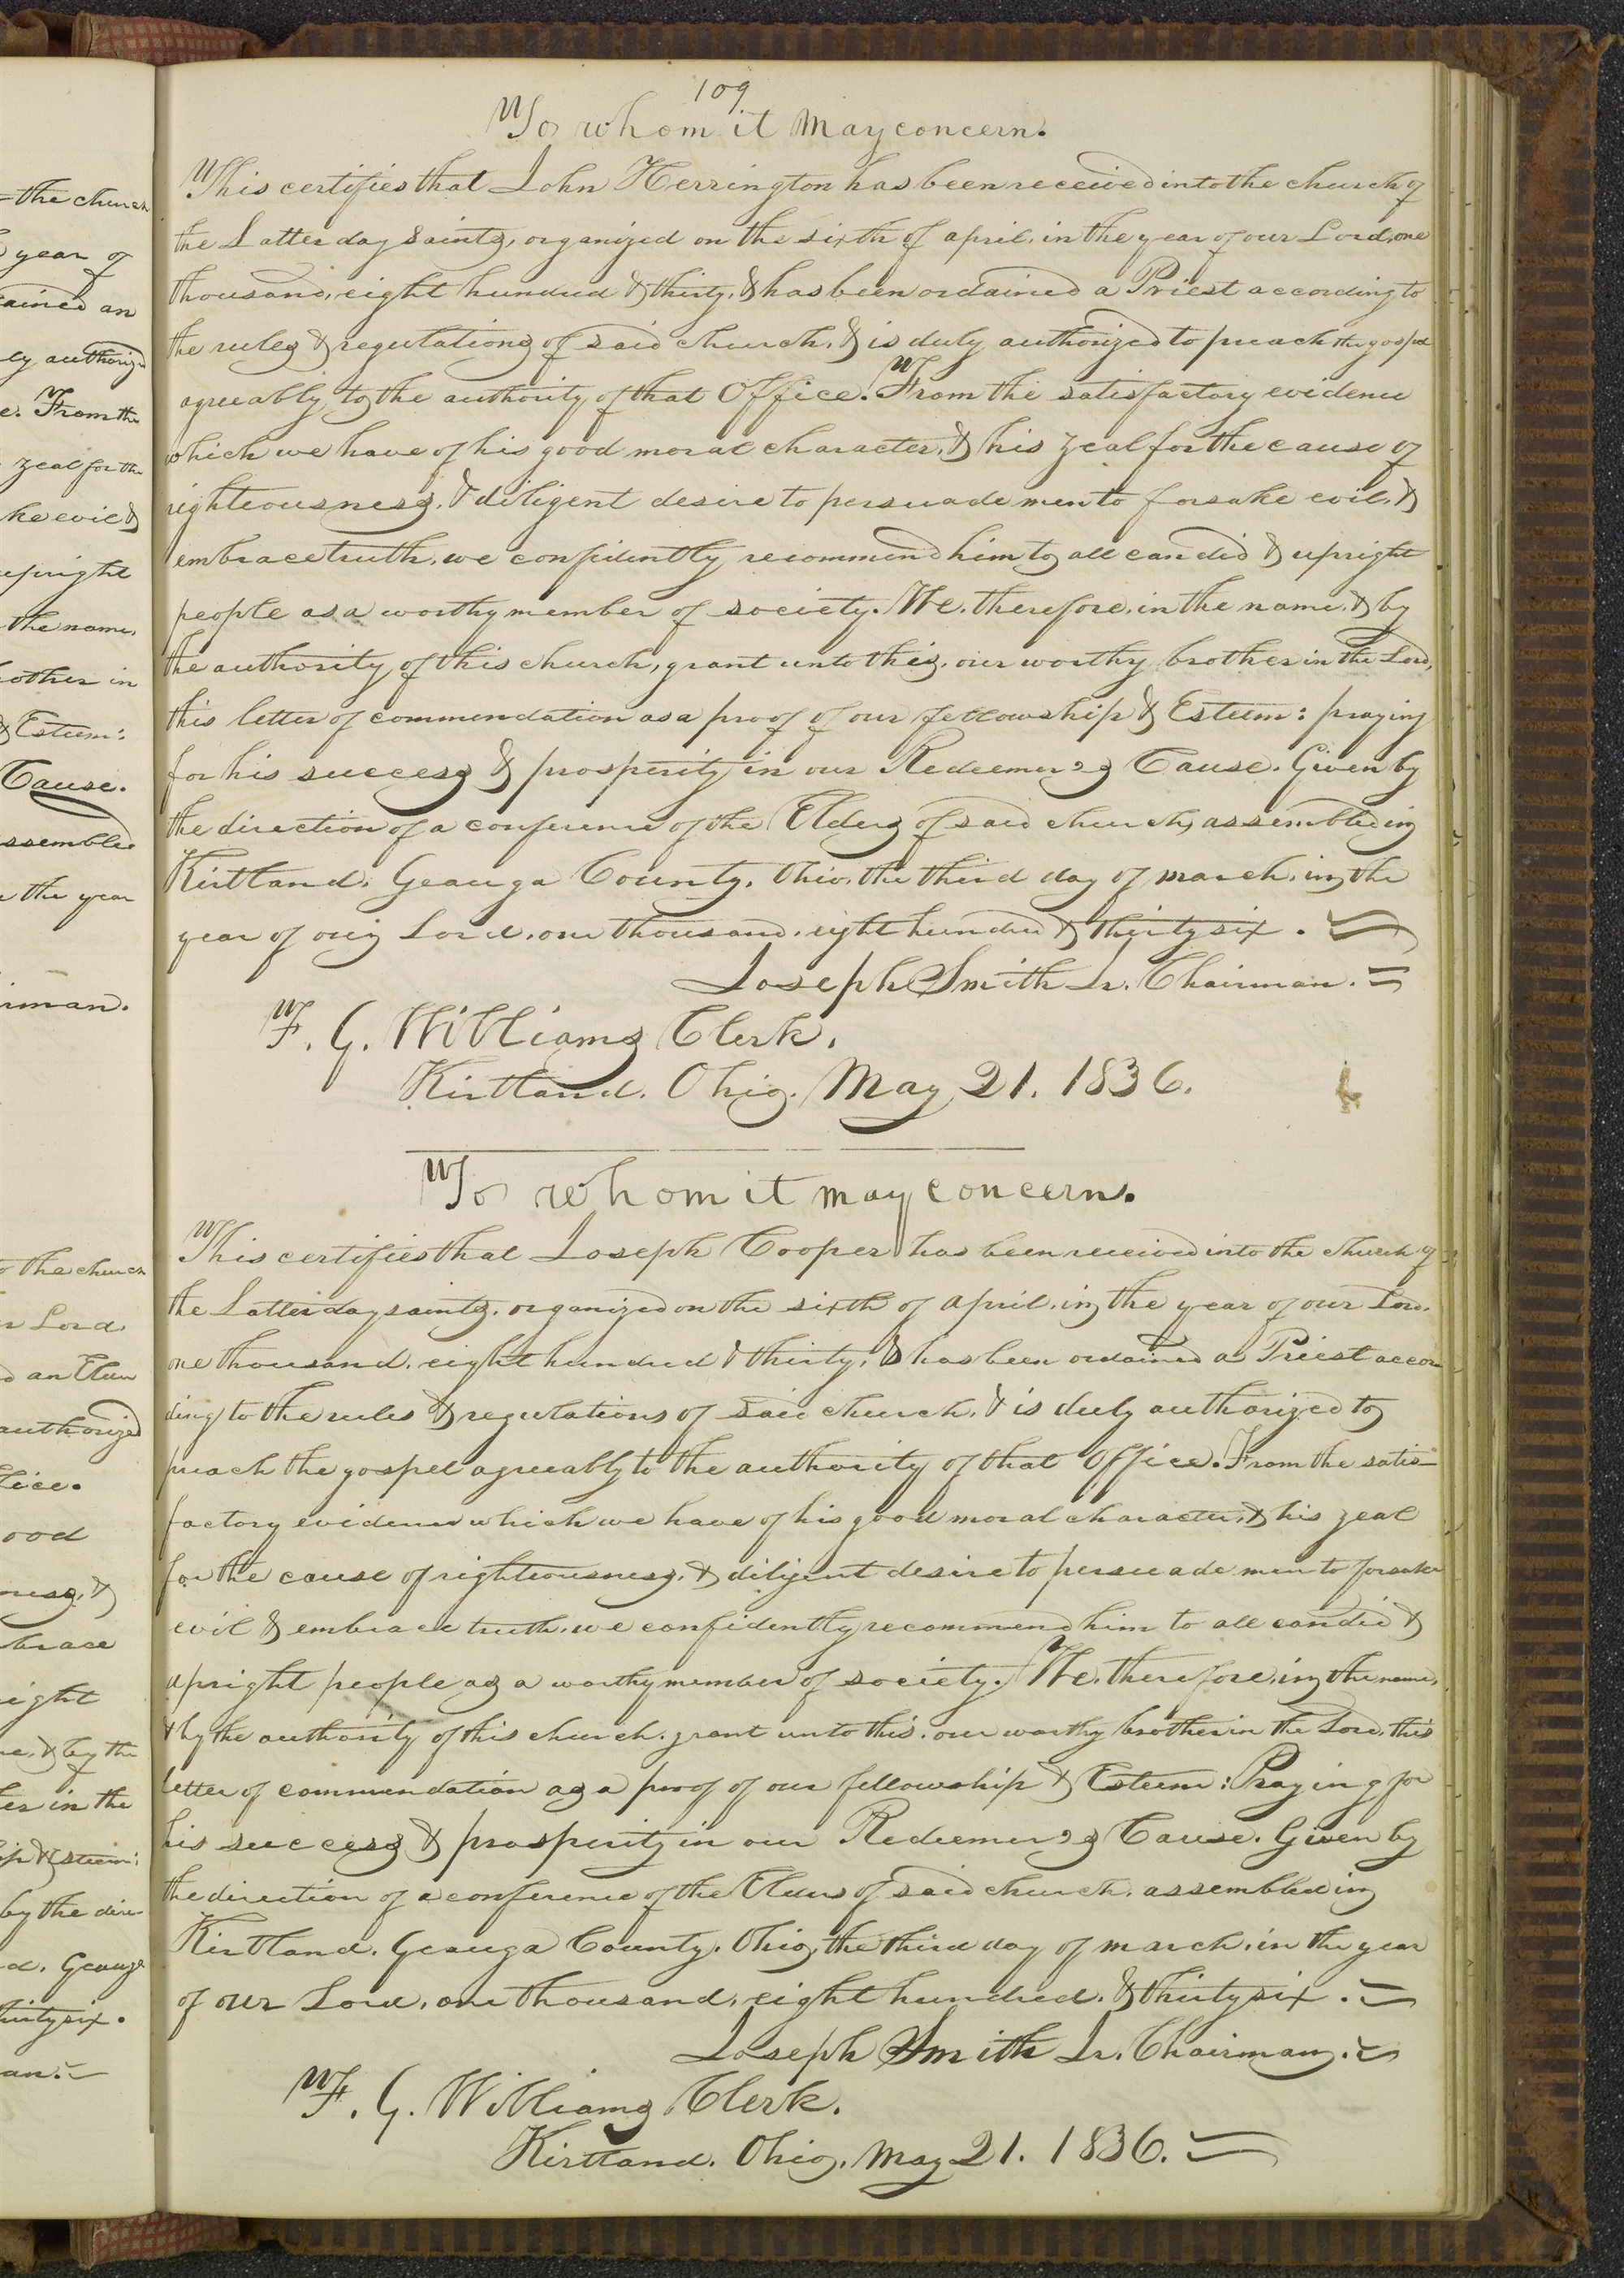 = the church
year of
ained an
ly authorize
e. From the
zeal for the
ke evil &
upright
the name,
other in
& Esteem:
Cause.
ssembled
the year
irman.
to the church
r Lord
d an Elder
authorized
fice.
ood
ness, &
brace
right
me, & by the
her in the
ip & Esteem:
by the dire-
d, Geauga
hirty six.
an.
109
To whom it May concern.
This certifies that John Herrington has been received into the church of
the Latter day Saints, organized on the sixth of april, in the year of our Lord, one
thousand, eight hundred & thirty, & has been ordained a Priest according to
the rules & regulations of said church, & is duly authorized to preach the gospel
agreeably to the authority of that Office. From the satisfactory evidence
which we have of his good moral character, & his zeal for the cause of
righteousness, & diligent desire to persuade men to forsake evil, &
embrace truth, we confidently recommend him to all candid & upright
people as a worthy member of society. We, therefore, in the name, & by
the authority of this church, grant unto this, our worthy brother in the Lord,
this letter of commendation as a proof of our fellowship & Esteem: praying
for his success & prosperity in our Redeemer's Cause. Given by
the direction of a conference of the Elders of said church, assembled in
Kirtland, Geauga County, Ohio, the third day of march, in the
year of our Lord, one thousand, eight hundred & thirty six.
Joseph Smith Jr. Chairman.
F. G. Williams Clerk.
Kirtland, Ohio, May 21. 1836.
To whom it may concern.
This certifies that Joseph Cooper has been received into the church of
the Latter day saints, organized on the sixth of april, in the year of our Lord,
one thousand, eight hundred & thirty, & has been ordained a Priest accor
ding to the rules & regulations of said church, & is duly authorized to
preach the gospel agreeably to the authority of that Office. From the satis-
factory evidence which we have of his good moral character, & his zeal
for the cause of righteousness, & diligent desire to persuade men to forsake
evil & embrace truth, we confidently recommend him to all candid &
upright people as a worthy member of society. We, therefore, in the name,
& by the authority of this church, grant unto this, our worthy brother in the Lord, this
letter of commendation as a proof of our fellowship & Esteem: Praying for
his success & prosperity in our Redeemer's Cause. Given by
the direction of a conference of the Elders of said church, assembled in
Kirtland, Geauga County, Ohio, the third day of march, in the year
of our Lord, one thousand, eight hundred, & thirty six.
Joseph Smith Jr. Chairman.
F. G. Williams Clerk.
Kirtland, Ohio, May 21. 1836.